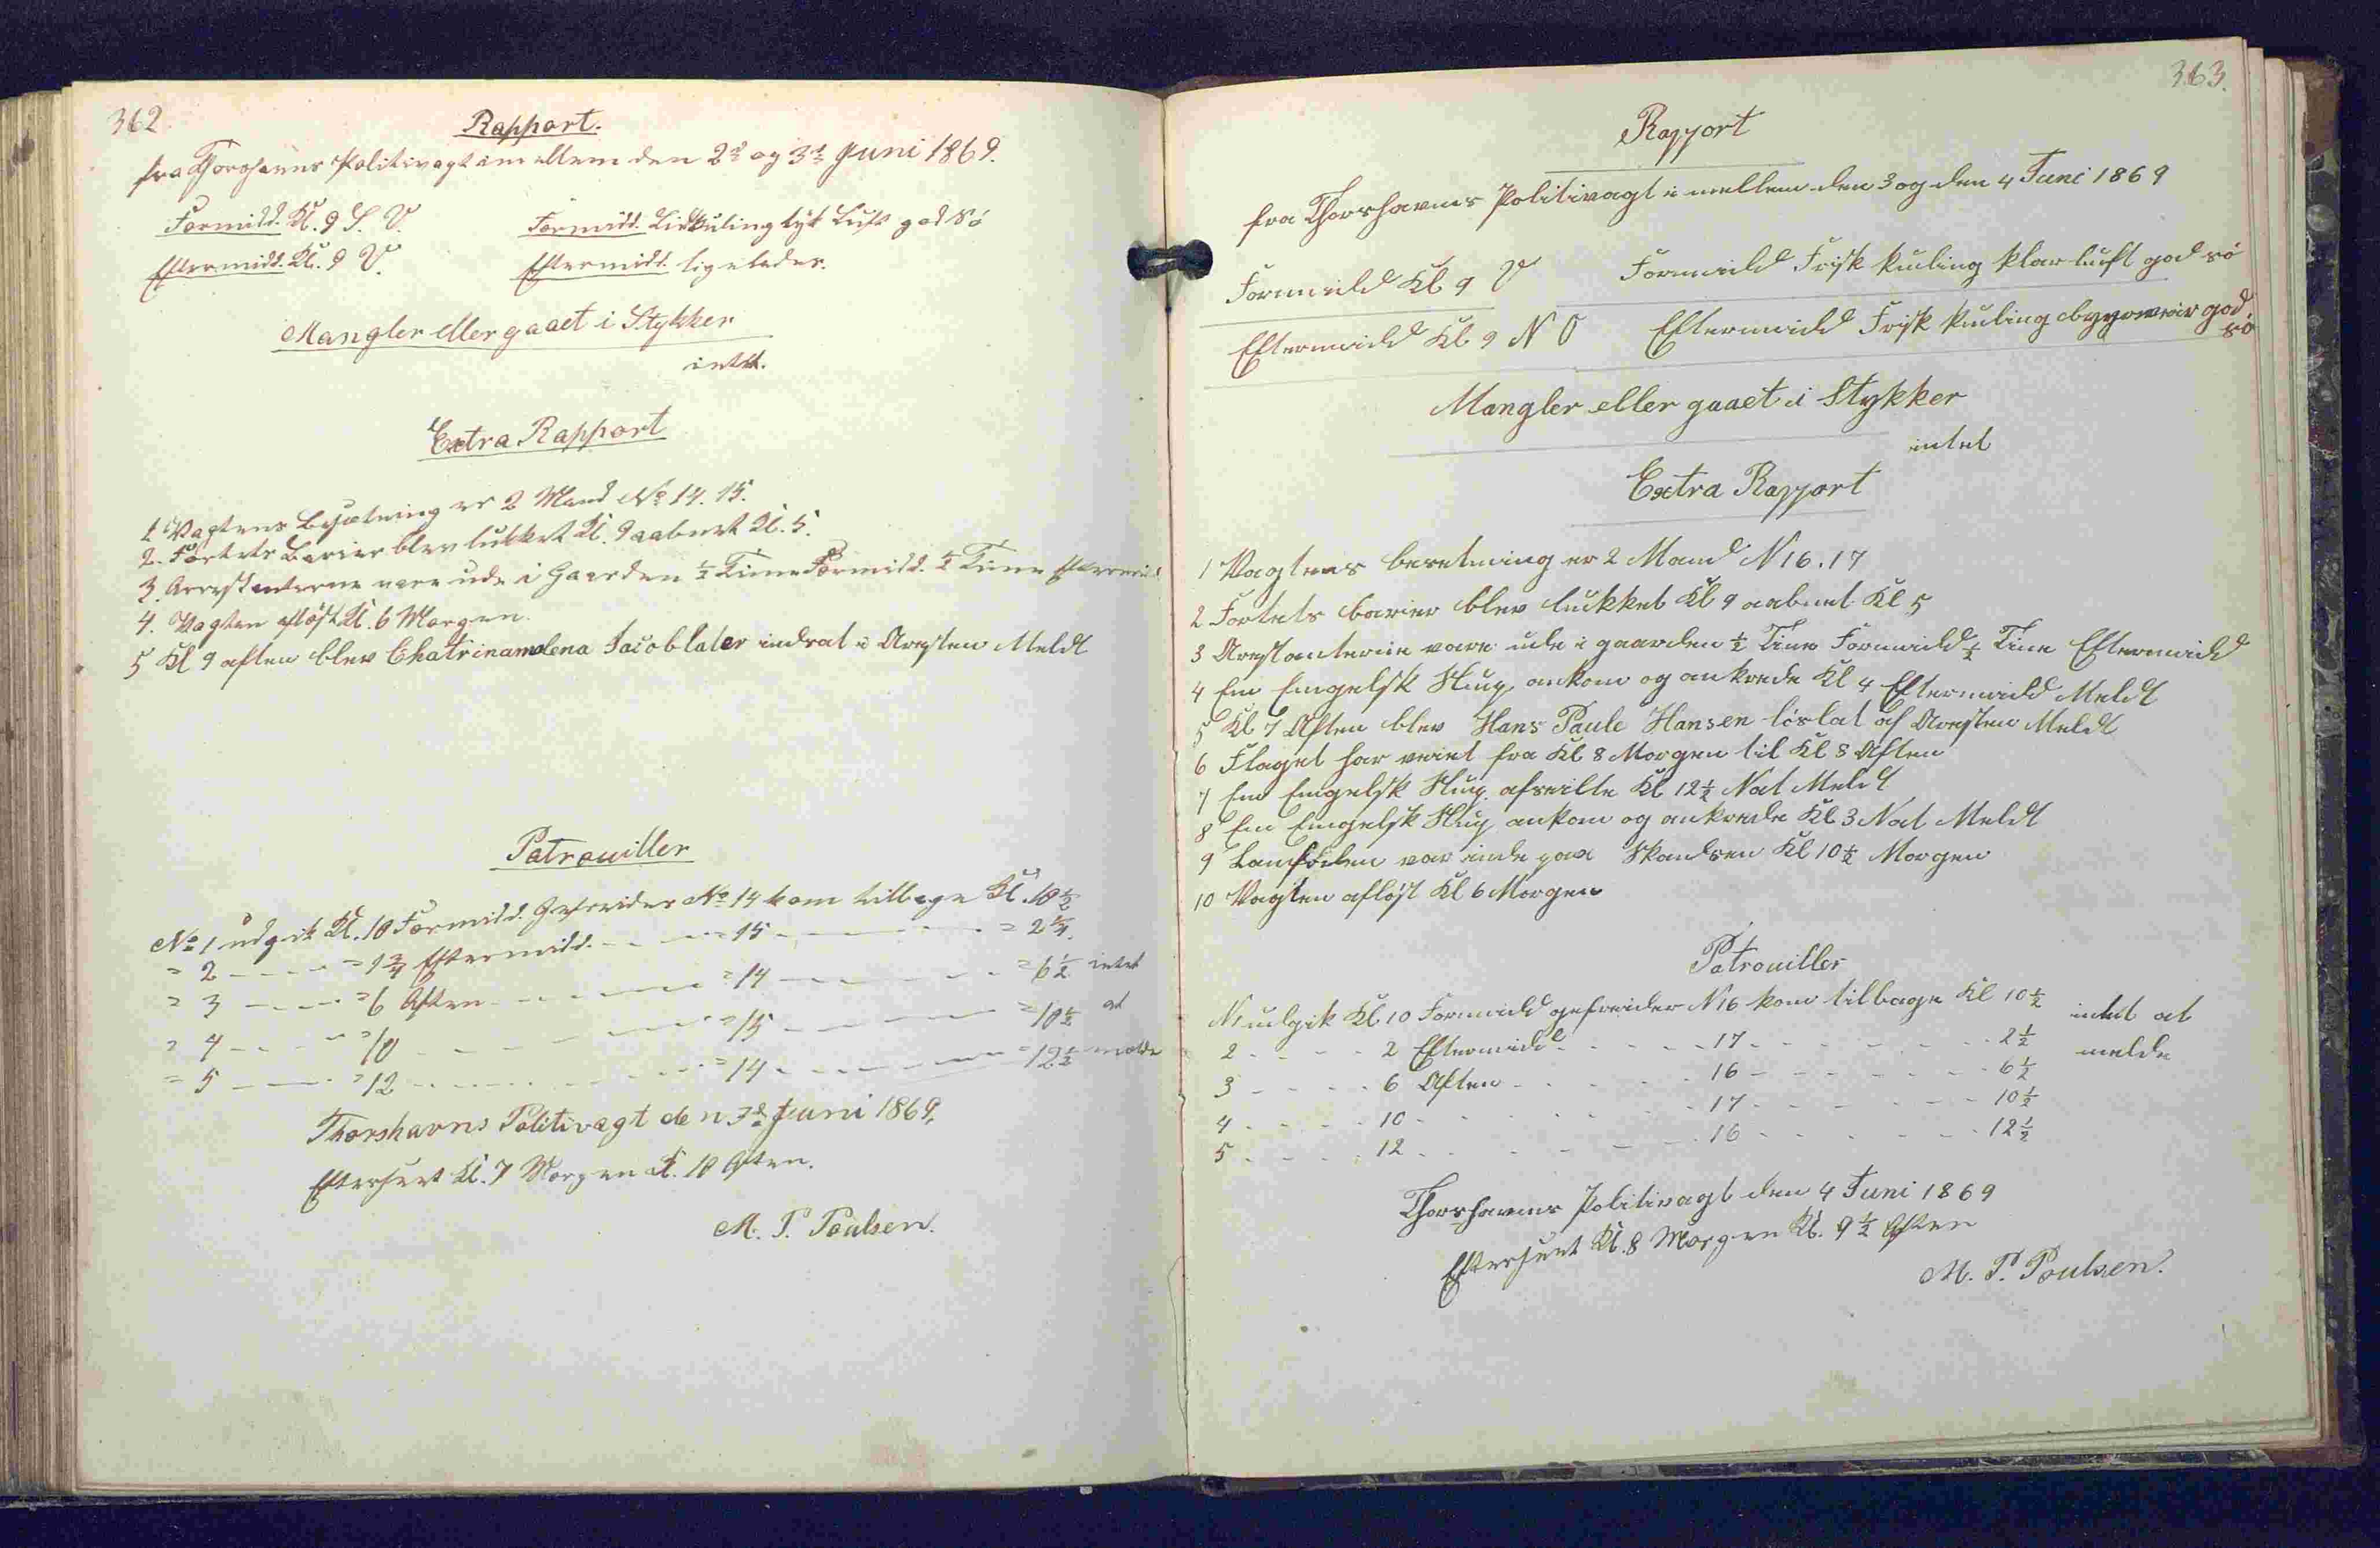 362.
Rapport.
fra Thorshavns Politivagt imellem den 2d og 3d Juni 1869.
Formidd. Kl. 9 S. V. Formidd. Lidkuling tyk Luft god Sö
Eftermidd. Kl. 9 V. Eftermidd. ligeledes.
Mangler eller gaaet i Stykker
intet.
Extra Rapport
1 Vagtens Besætning er 2 Mand No 14. 15.
2. Fortets Barier blev lukket Kl. 9 aabnet Kl. 5.
3. Arrestanterne vare ude i Gaarden ½ Time Formidd. ½ Time Eftermidd.
4. Vagten aflöst Kl. 6 Morgen.
5 Kl 9 aften blev Chatrinamalena Jacoblater indsat i Aresten Meldt
Patrouiller
No 1 udgik Kl. 10 Formidd. Gefreider No 14 kom tilbage Kl. 10½
= 2 - - - = 1¾ Eftermidd. - - - = 15 - - - = 2¼.
= 3 - - - = 6 Aften - - - = 14 - - - = 6½ intet
= 4 - - - = 10 - - - = 15 - - - = 10½ at
= 5 - - - = 12 - - - = 14 - - - = 12½ melde
Thorshavns Politivagt den 3d Juni 1869.
Efterseet Kl. 7 Morgen Kl. 10 Aften.
M. P. Poulsen.
363.
Rapport
fra Thorshavns Politivagt i mellem den 3 og den 4 Juni 1869
Formidd Kl 9 V Formidd Frisk kuling klar luft god sö
Eftermidd Kl 9 N O Eftermidd Frisk kuling god
sö
Mangler eller gaaet i Stykker
intet
Extra Rapport
1 Vagtens besetning er 2 Mand N 16. 17
2 Fortets barier blev lukket Kl 9 aabnet Kl 5
3 Arestanterne vare ude i gaarden ½ Time Formidd ½ Time Eftermidd
4 En Engelsk Slup ankom og ankrede Kl 4 Eftermidd Meldt
5 Kl 7 Aften blev Hans Paule Hansen löslat af Aresten Meldt
6 Flaget har veiet fra Kl 8 Morgen til Kl 8 Aften
7 En Engelsk Slup afseilte Kl 12½ Nat Meldt
8 En Engelsk Slup ankom og ankrede Kl 3 Nat Meldt
9 var inde paa Skandsen Kl 10½ Morgen
10 Vagten aflöst Kl 6 Morgen
Patrouiller
N 1 udgik Kl 10 Formidd gefreider N 16 kom tilbage Kl 10½ intet at
2 - - - - 2 Eftermidd - - - - 17 - - - - 2½ melde
3 - - - - 6 Aften - - - - 16 - - - - 6½
4 - - - - 10 - - - - 17 - - - - 10½
5 - - - - 12 - - - - 16 - - - - 12½
Thorshavns Politivagt den 4 Juni 1869
Efterseet Kl. 8 Morgen Kl. 9½ Aften
M. P. Poulsen.